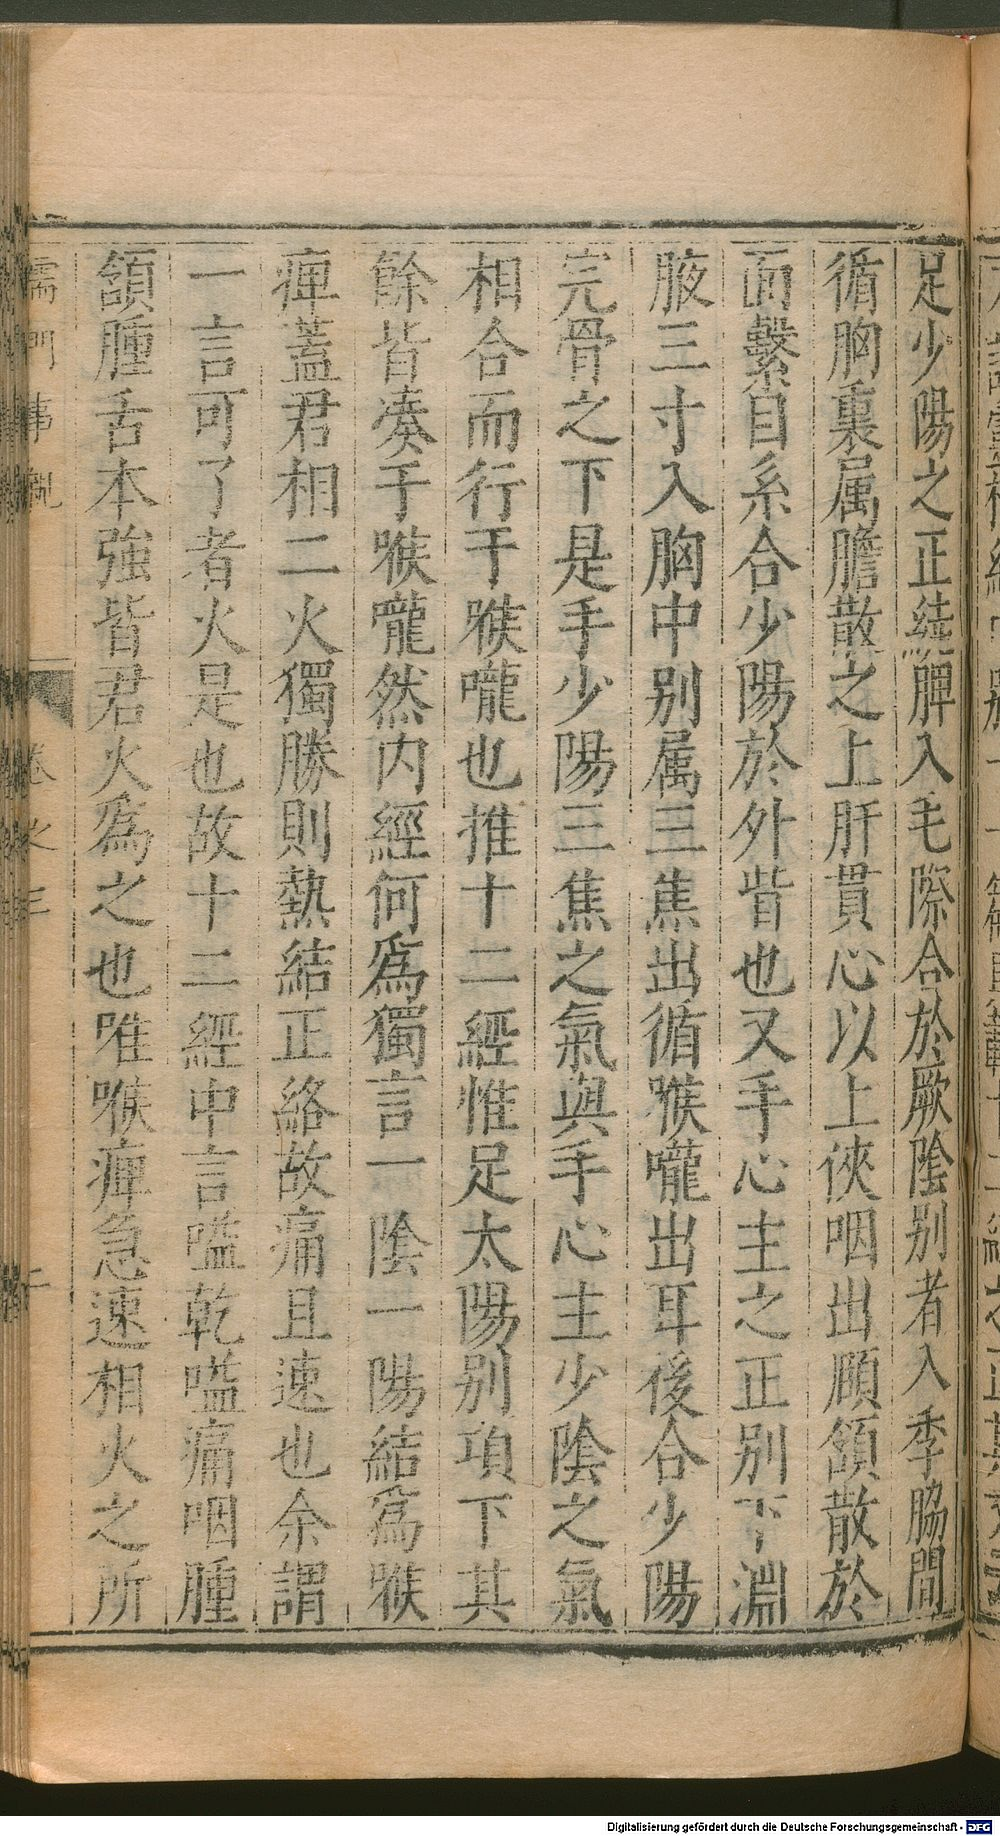 足少陽之正繞脾入毛際合於厥陰別者入季脇間
循胸裏属膽散之上肝貫心以上俠咽出頤頷散於
面繫目系合少陽於外眥也又手心主之正別下淵
腋三寸入胸中別属三焦出循喉嚨出耳後合少陽
完骨之下是手少陽三焦之氣與手心主少陰之氣
相合而行于喉嚨也推十二經惟足太陽別項下其
餘皆湊于喉嚨然内經何爲獨言一陰一陽結爲喉
痺蓋君相二火獨勝則熱結正絡故痛且速也余謂
一言可了者火是也故十二經中言嗌乾嗌痛咽腫
頷腫舌本強皆君火爲之也唯喉痺急速相火之所
儒門事親 卷之三
Digitalisierung gefördert durch die Deutsche Forschungsgemeinschaft - DFG